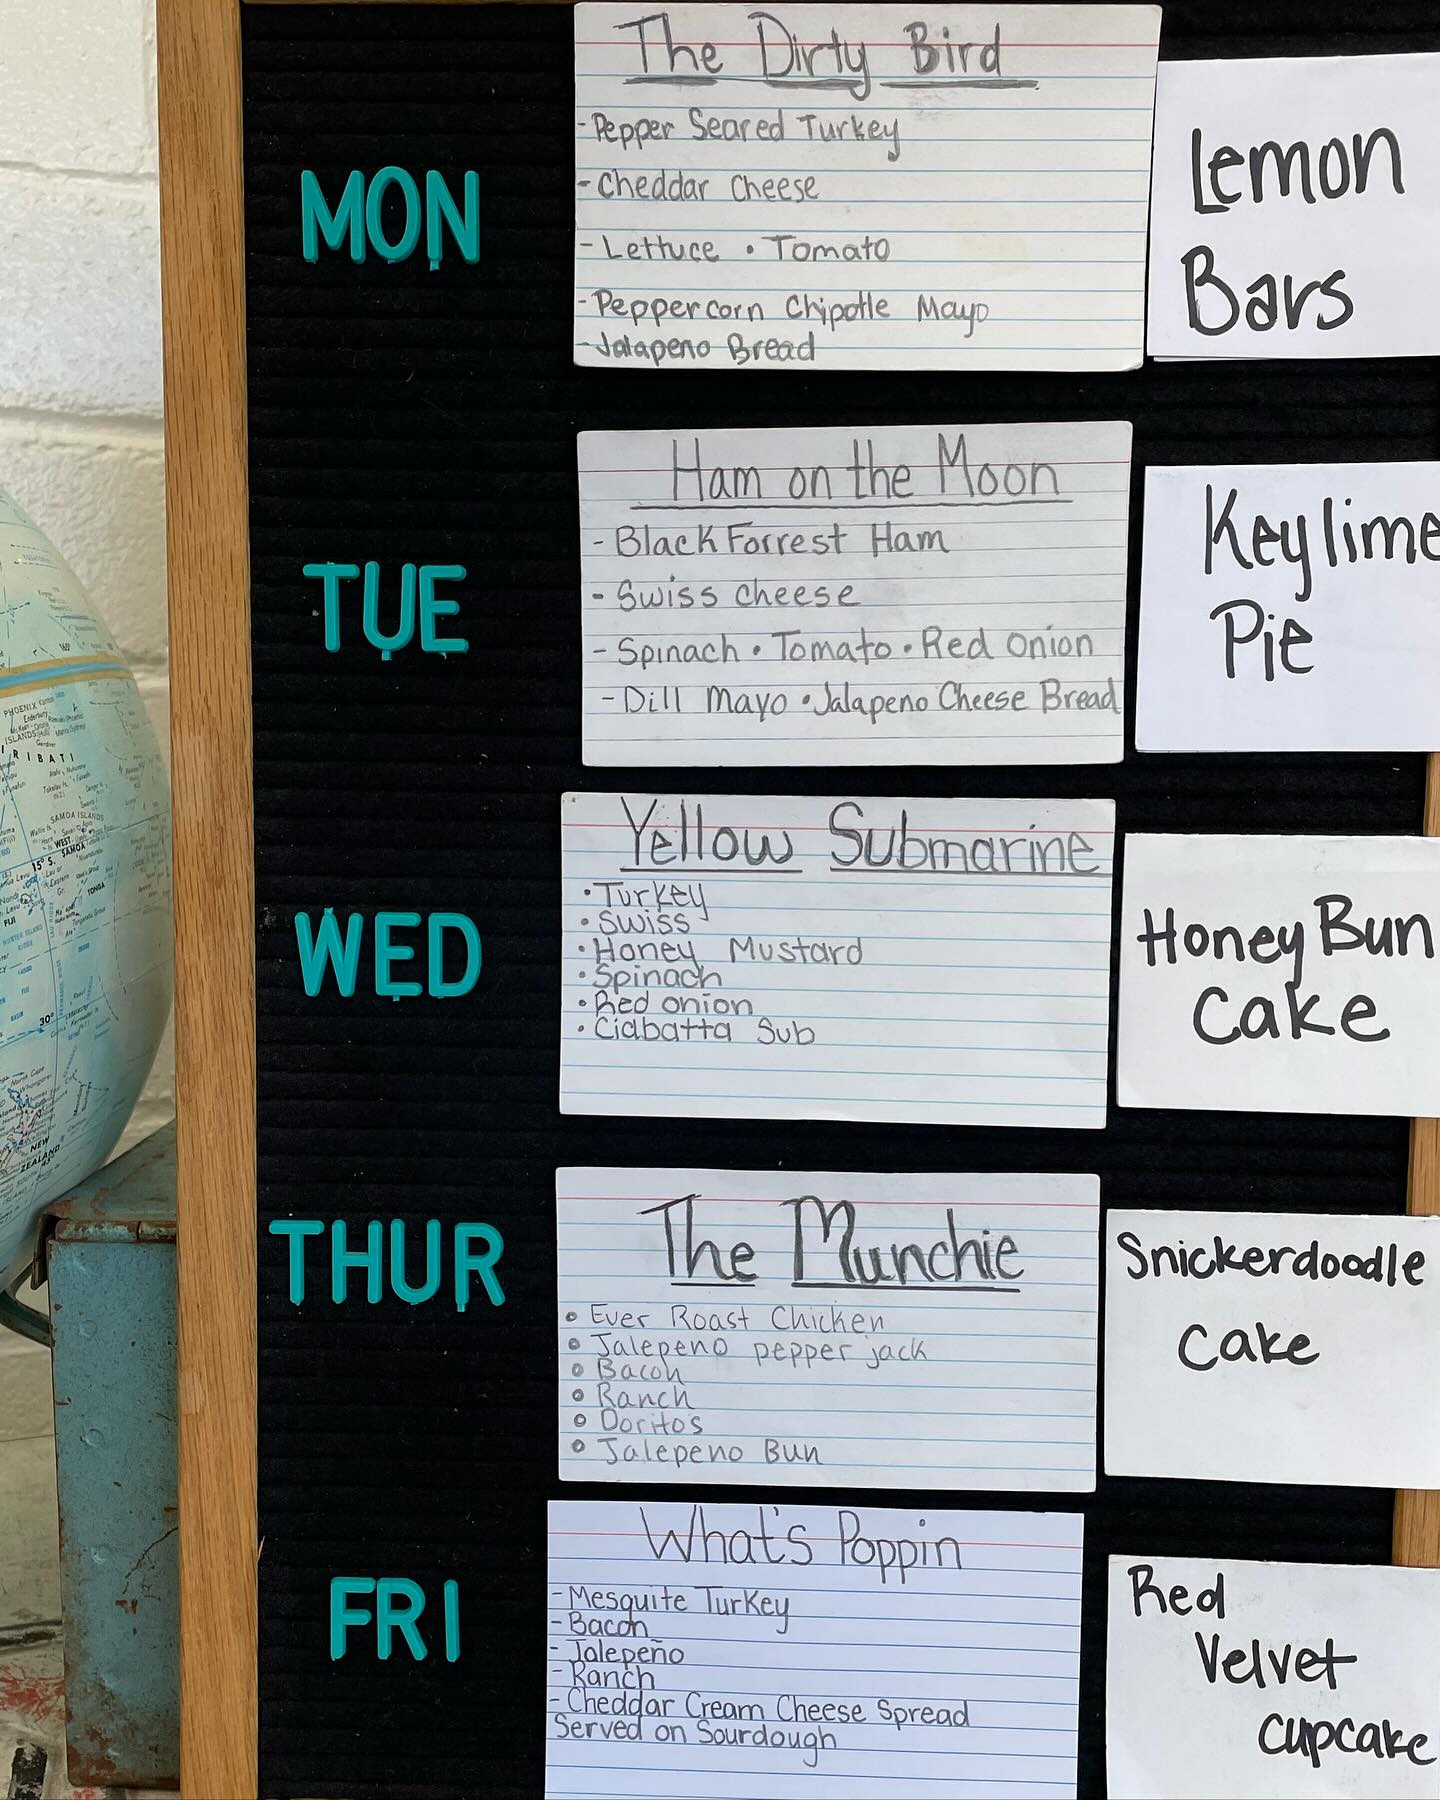 MON
The Dirty Bird
-Pepper Seared Turkey
-Cheddar Cheese
-Lettuce • Tomato
-Peppercorn Chipotle Mayo
-Jalapeno Bread
Lemon
Bars
TUE
Ham on the Moon
-Black Forrest Ham
-Swiss cheese
-Spinach • Tomato • Red Onion
-Dill Mayo • Jalapeno Cheese Bread
Key lime
Pie
WED
Yellow Submarine
•Turkey
•Swiss
•Honey Mustard
•Spinach
•Red onion
•Ciabatta Sub
Honey Bun
Cake
THUR
The Munchie
• Ever Roast Chicken
• Jalepeno pepper jack
• Bacon
• Ranch
• Doritos
• Jalepeno Bun
Snickerdoodle
Cake
FRI
What's Poppin
-Mesquite Turkey
-Bacon
-Jalepeño
-Ranch
-Cheddar Cream Cheese Spread
Served on Sourdough
Red
Velvet
cupcake
PHOENIX
ISLANDS
KIRIBATI
SAMOA ISLANDS
WEST. SAMOA
15° S.
TONGA
FIJI
30°
NEW
ZEALAND